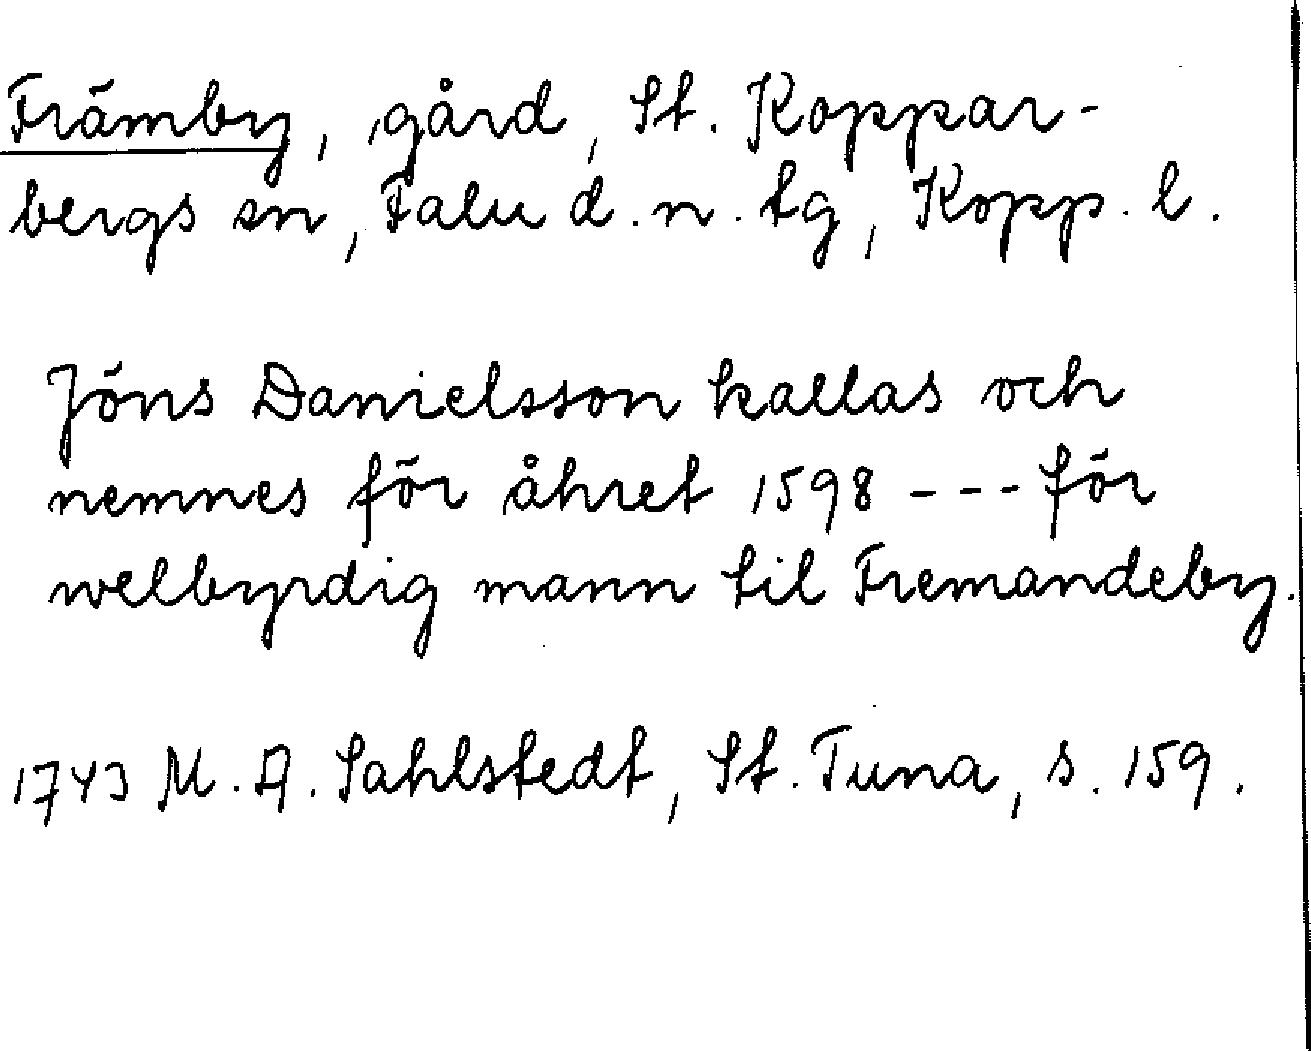 Främby, gård, St. Koppar-
bergs sn, Falu d.n. tg, Kopp. l.
Jöns Danielsson kallas och
nemnes för åhret 1598 --- för
welbyrdig mann til Fremandeby.
1743 M.A. Sahlstedt, St. Tuna, s. 159.